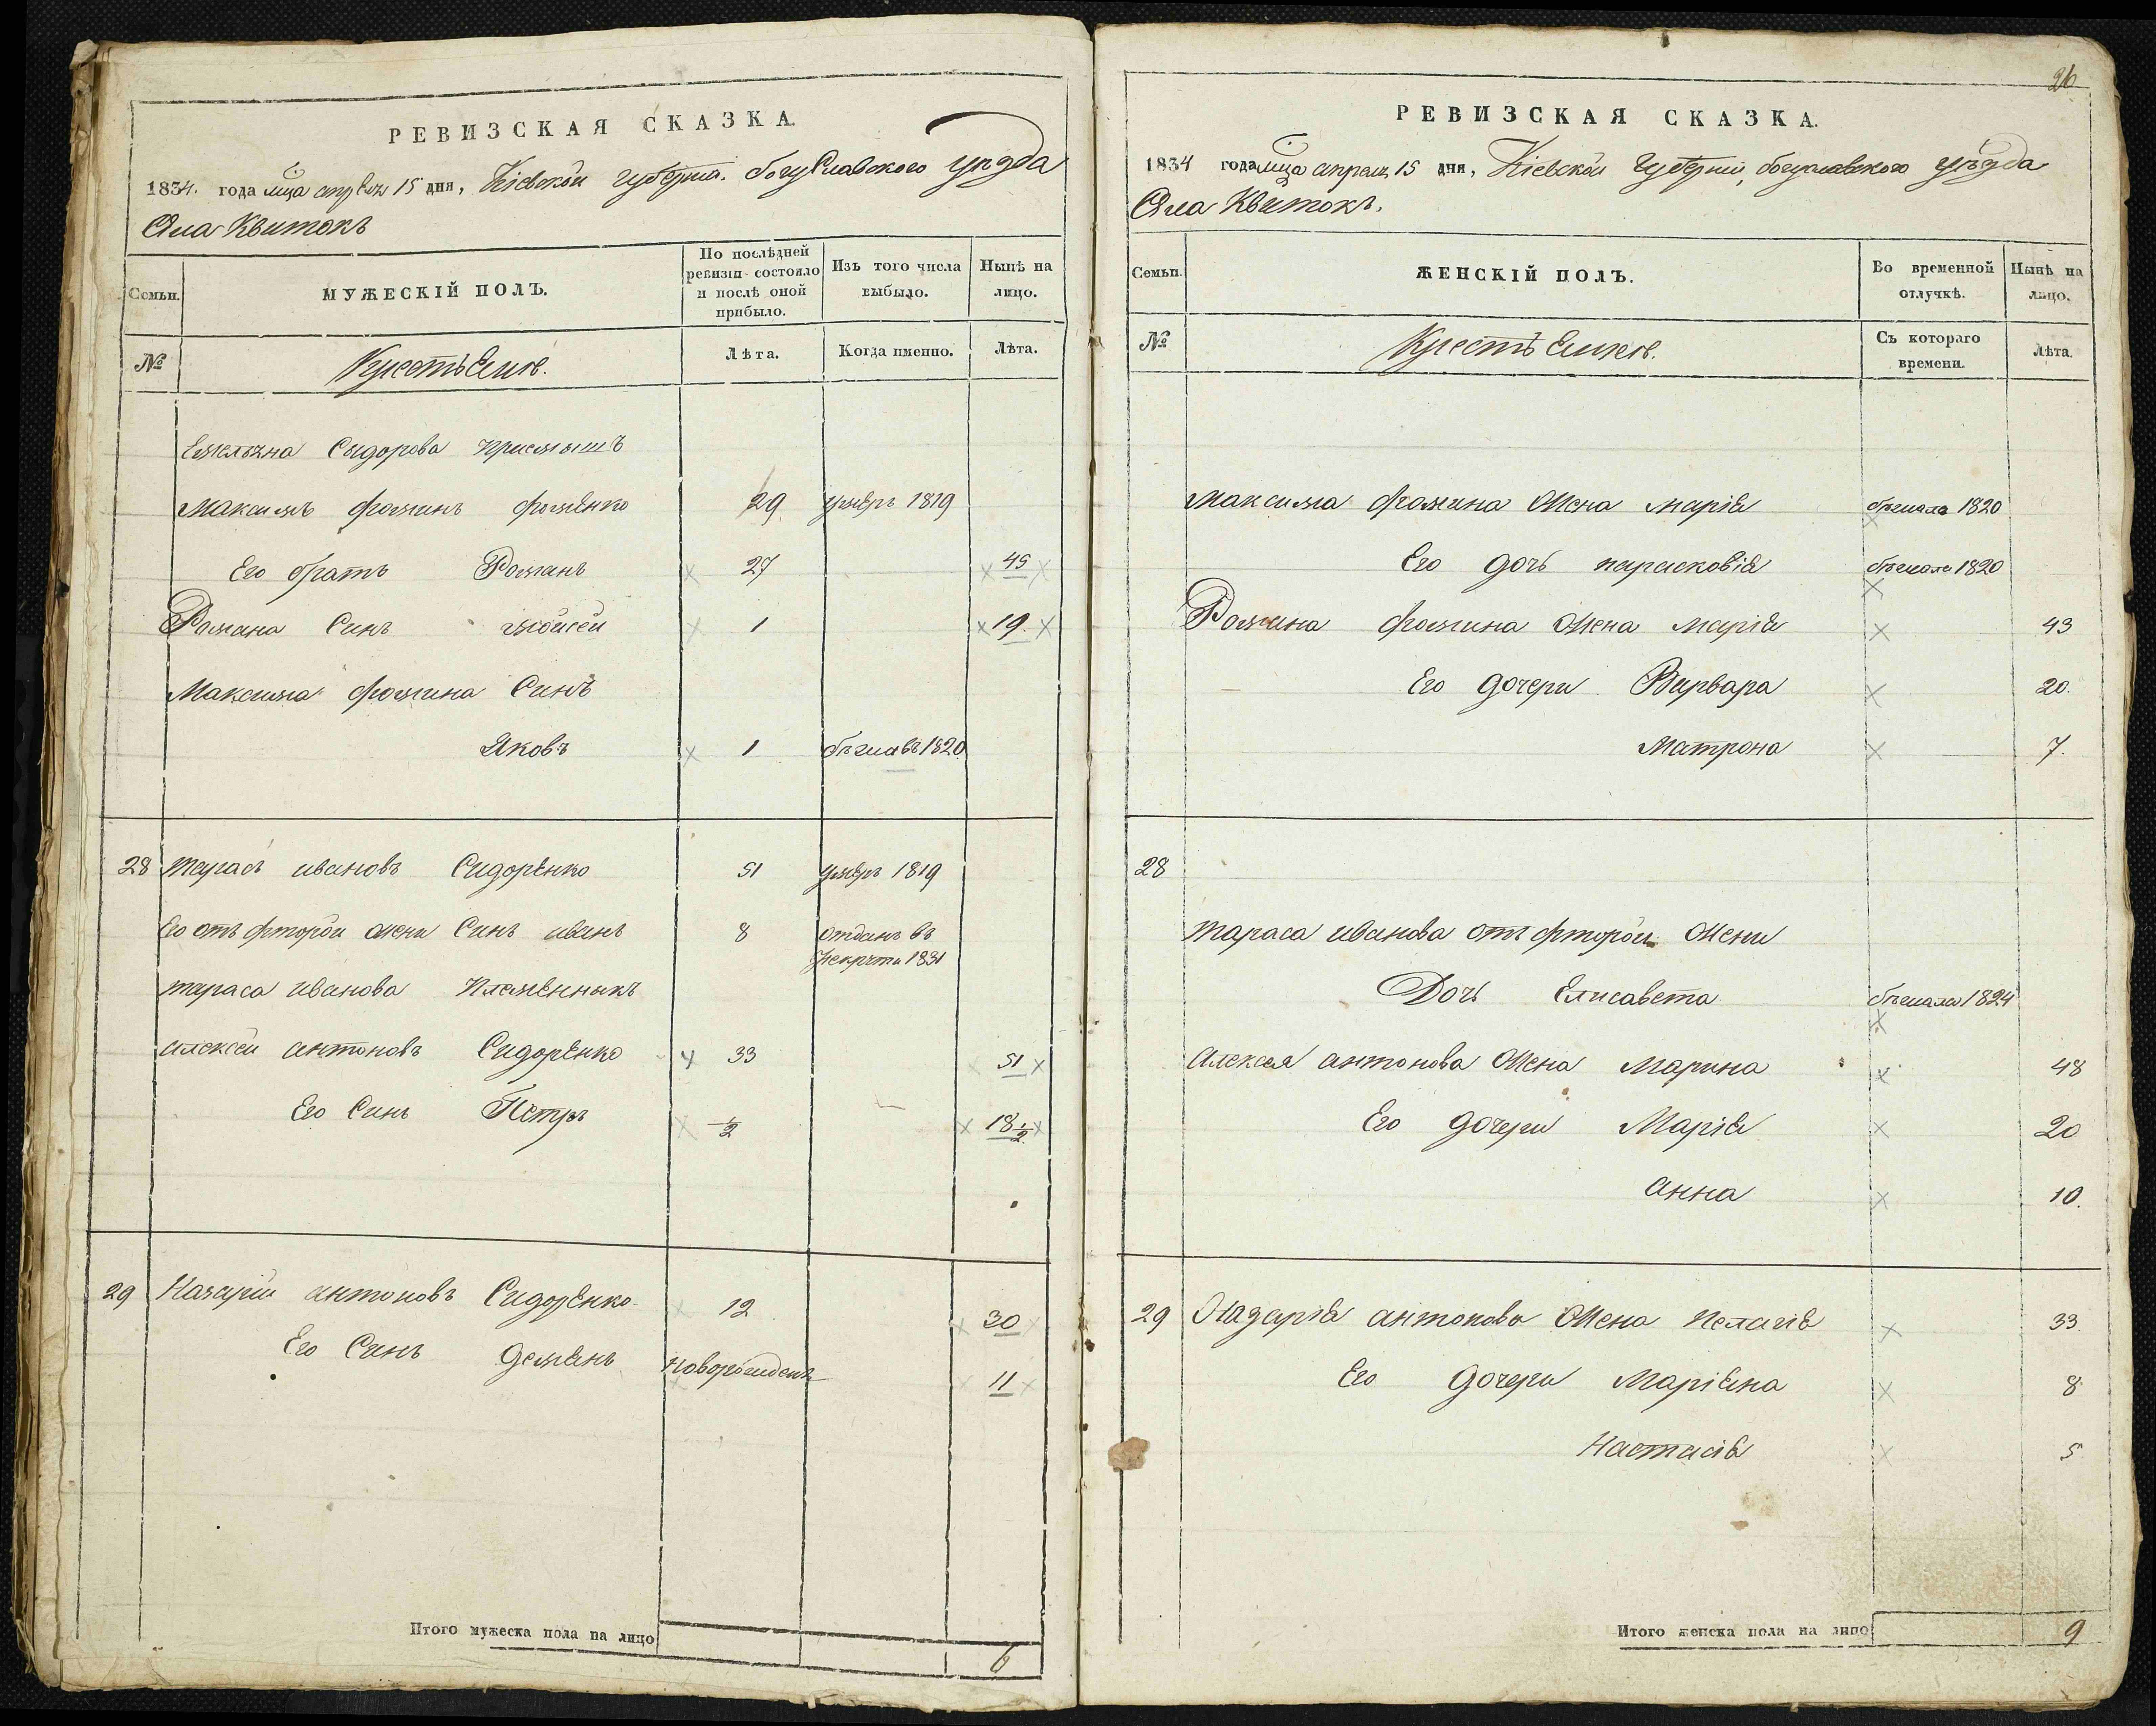 РЕВИЗСКАЯ СКАЗКА.
1834. года мца апреля 15 дня, Кіевской губерніи. богуславского уезда
Села Квитокъ
Семьи.
МУЖЕСКІЙ ПОЛЪ.
По послѣдней ревизіи состояло и послѣ оной прибыло.
Изъ того числа выбыло.
Нынѣ на лицо.
№
Крестьяне.
Лѣта.
Когда именно.
Лѣта.
Емельяна Сыдорова приемышъ
Максимъ фоминъ фоменко 29 умеръ 1819
Его братъ Романъ 27 45
Романа Синъ мойсей 1 19.
Максима фомина Синъ
Яковъ 1 бежавъ 1820
28 Тарасъ ивановъ Сидоренко 51 умеръ 1819
Его отъ фторой жени Синъ иванъ 8 отданъ въ
рекруты 1831
тараса иванова Племенныкъ
алексей антоновъ Сидоренко 33 51
Его Синъ Петръ 1/2 18 1/2
29 Назарій антоновъ Сидоренко 12 30
Его Синъ демянъ новорожденъ 11
Итого мужеска пола на лицо 6
26
РЕВИЗСКАЯ СКАЗКА.
1834 года мца апреля 15 дня, Кіевской Губерніи, богуславского уезда
Села Квитокъ.
Семьи.
ЖЕНСКІЙ ПОЛЪ.
Во временной отлучкѣ.
Нынѣ на лицо.
№
Крестьянъ.
Съ котораго времени.
Лѣта.
Максима фомина жена марія бежала 1820
Его дочь парасковія бежала 1820
Романа фомина жена марія 43
Его дочери Варвара 20.
Матрона 7.
28
тараса иванова отъ фторой жени
Дочь Елисавета бежала 1824
алексея антонова жена Марина 48
Его дочери Марія 20
анна 10.
29 Назарія антонова жена Пелагія 33.
Его дочери Маріяна 8
Настасія 5
Итого женска пола на лицо 9